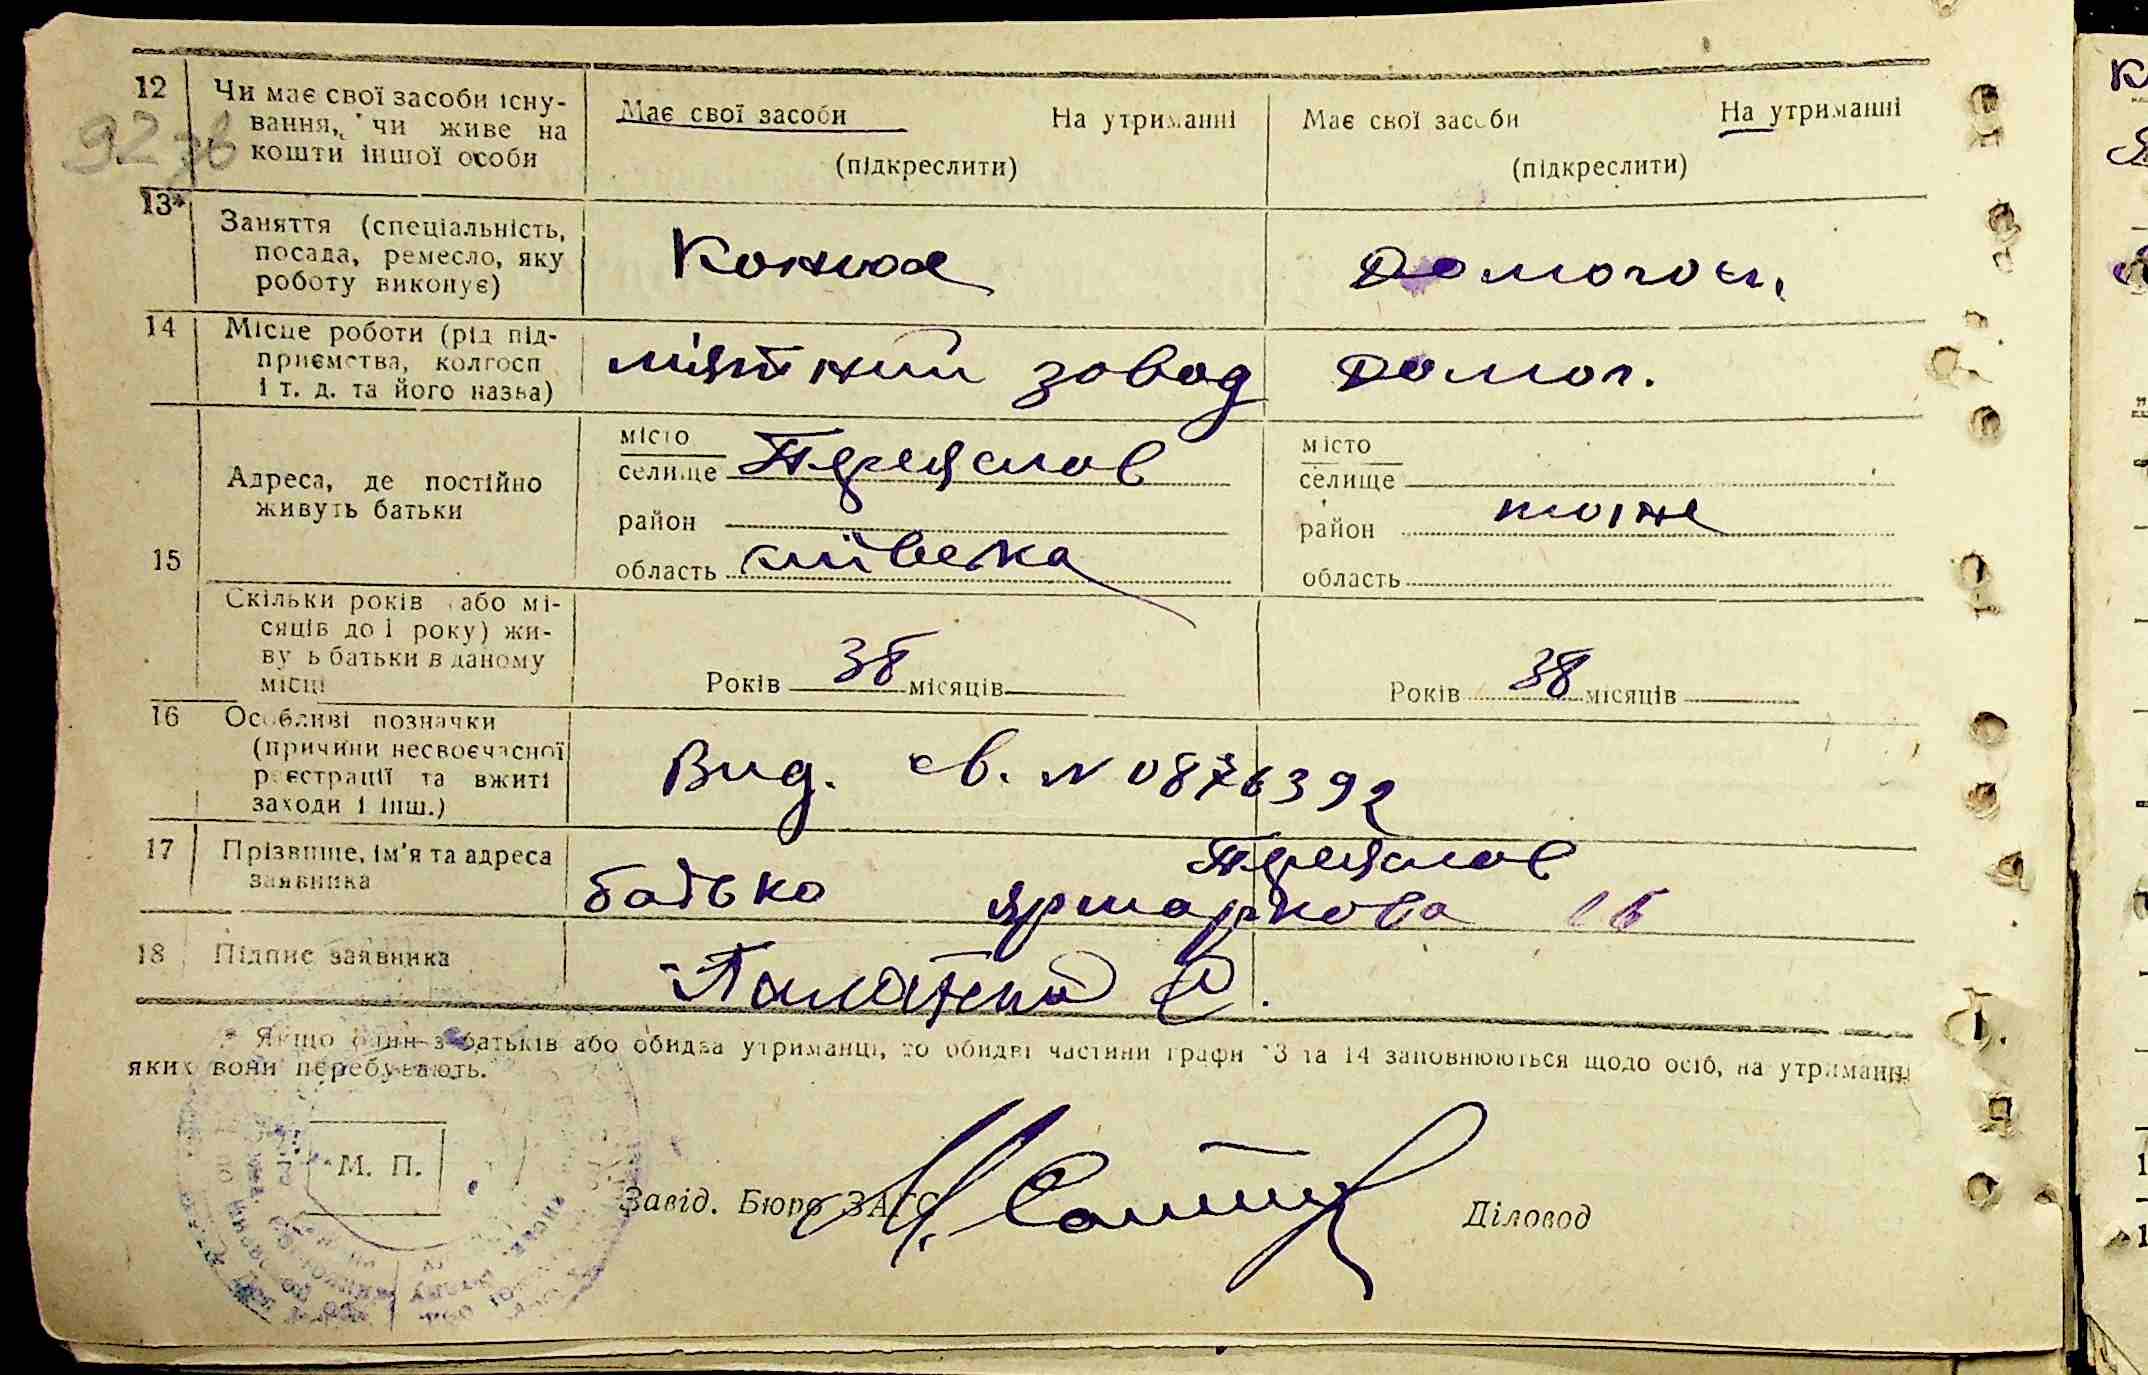 12 Чи має свої засоби існу-
вання, чи живе на
кошти іншої особи
Має свої засоби На утриманні
(підкреслити)
Має свої засоби На утриманні
(підкреслити)
92 зв
13* Заняття (спеціальність,
посада, ремесло, яку
роботу виконує)
Конюх
Домогосп.
14 Місце роботи (рід під-
приємства, колгосп
і т. д. та його назва)
м'ятний завод
Домог.
15 Адреса, де постійно
живуть батьки
місто
селище Переяслов
район
область київська
місто
селище
район тоже
область
Скільки років або мі-
сяців до 1 року) жи-
ву ь батьки в даному
місці
Років 38 місяців
Років 38 місяців
16 Особливі позначки
(причини несвоєчасної
реєстрації та вжиті
заходи і інш.)
Вид. св. № 0876392
17 Прізвище, ім'я та адреса
заявника
Переяслов
батько Ярмаркова 16
18 Підпис заявника
* Якщо один з батьків або обидва утриманці, то обидві частини графи 13 та 14 заповнюються щодо осіб, на утриманні
яких вони перебувають.
М. П.
Завід. Бюро ЗАГС
Діловод